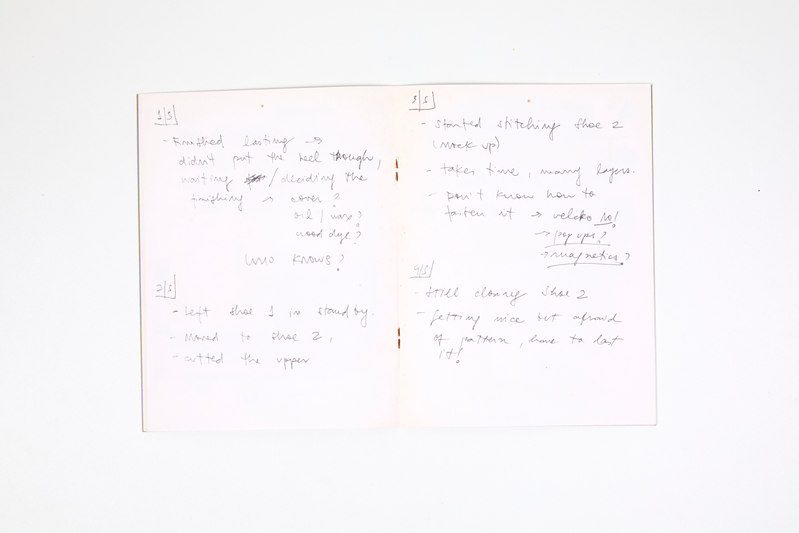 1|5
- Finished lasting →
didn't put the heel though,
waiting / deciding the
finishing → cover?
oil / wax?
wood dye?
who knows?
2|5
- Left shoe 1 in stand by.
- Moved to shoe 2,
- cutted the upper
3|5
- Started stitching shoe 2
(mock up)
- takes time, many layers.
- Don't know how to
fasten it → velcro no!
→ pop ups?
→ magnetics?
4|5
- Still shoe 2
- getting nice but afraid
of pattern, have to last
it!